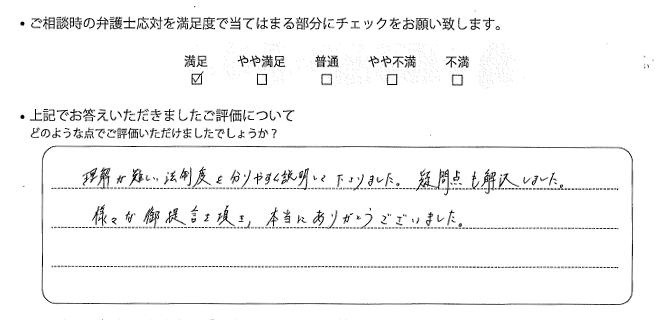 ・ご相談時の弁護士応対を満足度で当てはまる部分にチェックをお願い致します。
満足 やや満足 普通 やや不満 不満
☑ ☐ ☐ ☐ ☐
・上記でお答えいただきましたご評価について
どのような点でご評価いただけましたでしょうか？
理解が難しい法制度を分りやすく説明して下さりました。疑問点も解決しました。
様々な御提言を頂き、本当にありがとうございました。